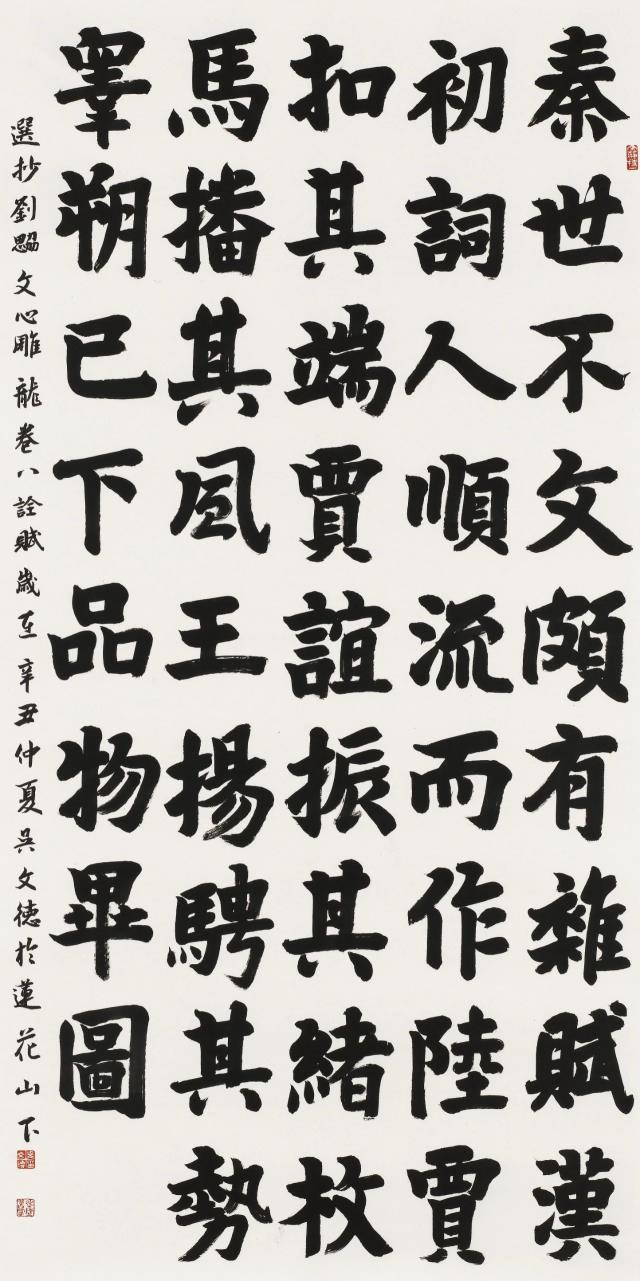 秦世不文頗有雜賦漢
初詞人順流而作陸賈
扣其端賈誼振其緒枚
馬播其風王揚騁其勢
睾朔已下品物畢圖
選抄劉勰文心雕龍卷八詮賦歲在辛丑仲夏吳文德於蓮花山下